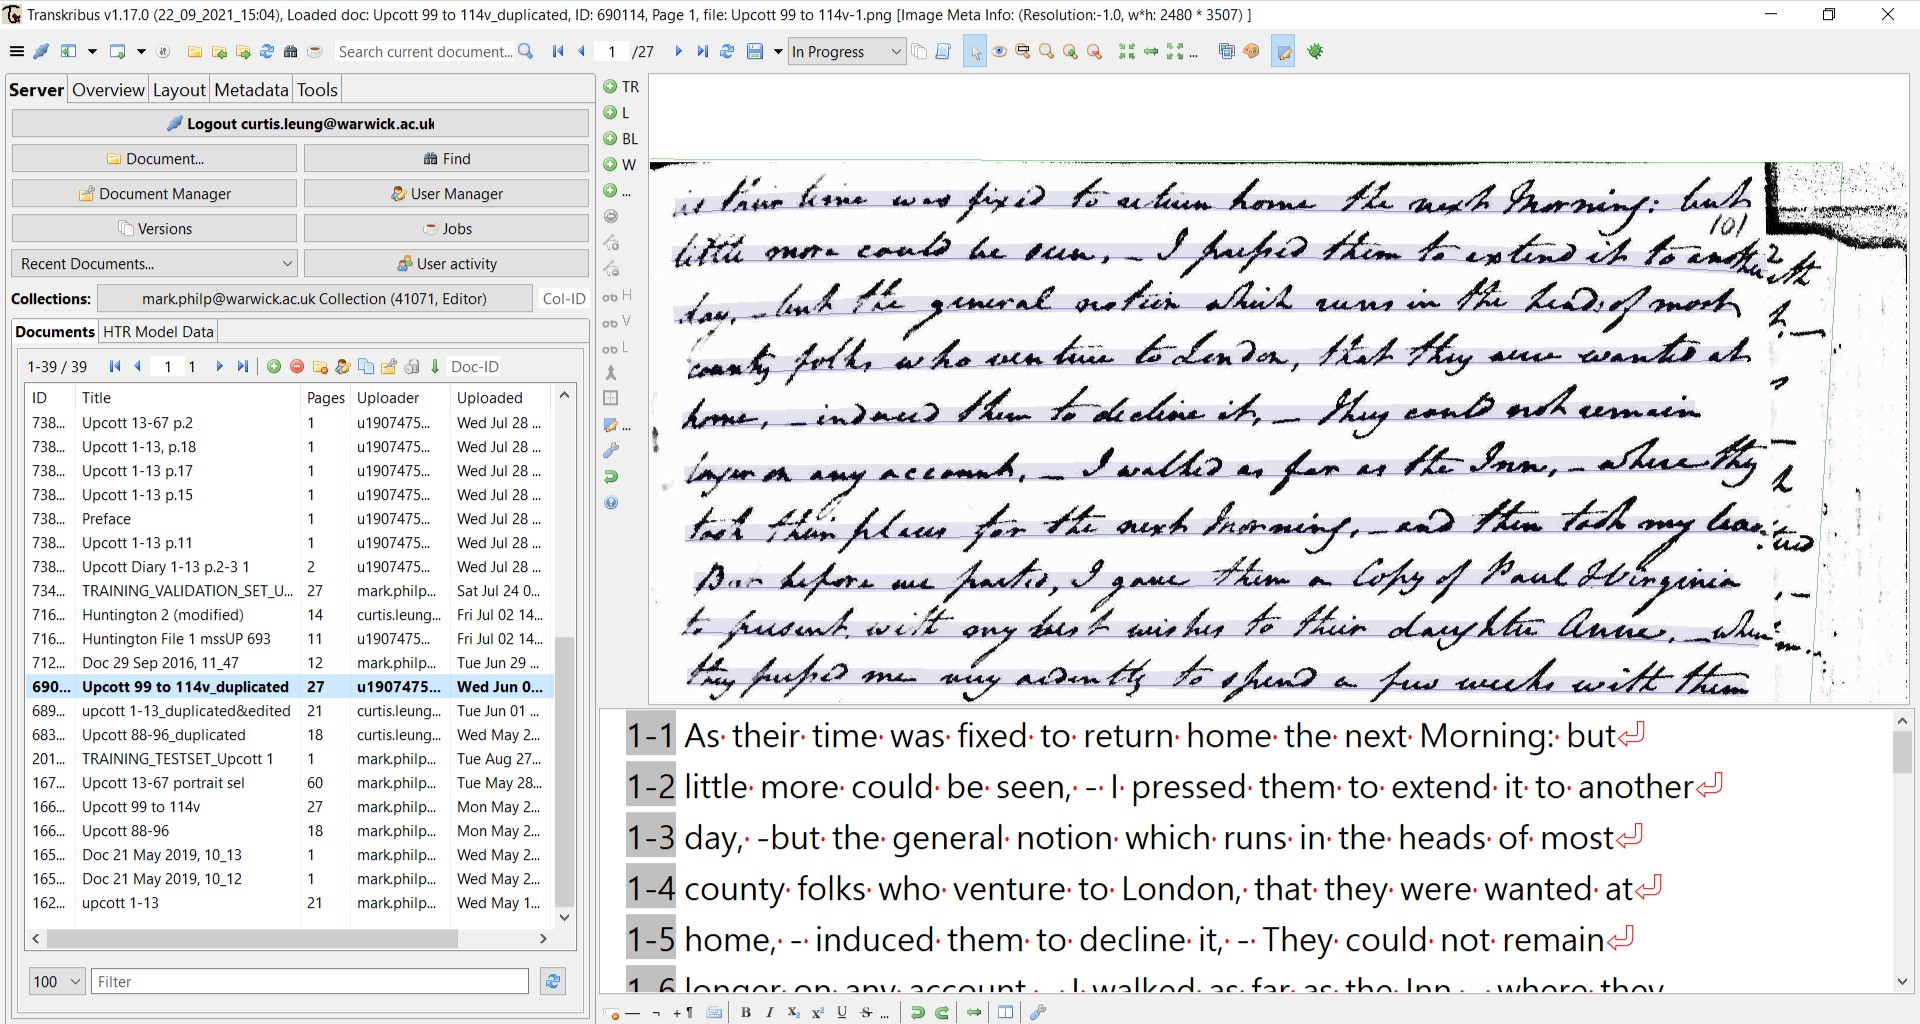 Transkribus v1.17.0 (22_09_2021_15:04), Loaded doc: Upcott 99 to 114v_duplicated, ID: 690114, Page 1, file: Upcott 99 to 114v-1.png [Image Meta Info: (Resolution:-1.0, w*h: 2480 * 3507) ]
Search current document...
1 /27
In Progress
Server Overview Layout Metadata Tools
Logout curtis.leung@warwick.ac.uk
Document... Find
Document Manager User Manager
Versions Jobs
Recent Documents... User activity
Collections: mark.philp@warwick.ac.uk Collection (41071, Editor) Col-ID
Documents HTR Model Data
1-39 / 39 1 1 Doc-ID
ID Title Pages Uploader Uploaded
738... Upcott 13-67 p.2 1 u1907475... Wed Jul 28 ...
738... Upcott 1-13, p.18 1 u1907475... Wed Jul 28 ...
738... Upcott 1-13 p.17 1 u1907475... Wed Jul 28 ...
738... Upcott 1-13 p.15 1 u1907475... Wed Jul 28 ...
738... Preface 1 u1907475... Wed Jul 28 ...
738... Upcott 1-13 p.11 1 u1907475... Wed Jul 28 ...
738... Upcott Diary 1-13 p.2-3 1 2 u1907475... Wed Jul 28 ...
734... TRAINING_VALIDATION_SET_U... 27 mark.philp... Sat Jul 24 0...
716... Huntington 2 (modified) 14 curtis.leung... Fri Jul 02 14...
716... Huntington File 1 mssUP 693 11 u1907475... Fri Jul 02 14...
712... Doc 29 Sep 2016, 11_47 12 mark.philp... Tue Jun 29 ...
690... Upcott 99 to 114v_duplicated 27 u1907475... Wed Jun 0...
689... upcott 1-13_duplicated&edited 21 curtis.leung... Tue Jun 01 ...
683... Upcott 88-96_duplicated 18 curtis.leung... Wed May 2...
201... TRAINING_TESTSET_Upcott 1 1 mark.philp... Tue Aug 27...
167... Upcott 13-67 portrait sel 60 mark.philp... Tue May 28...
166... Upcott 99 to 114v 27 mark.philp... Mon May 2...
166... Upcott 88-96 18 mark.philp... Mon May 2...
165... Doc 21 May 2019, 10_13 1 mark.philp... Wed May 2...
165... Doc 21 May 2019, 10_12 1 mark.philp... Wed May 2...
162... upcott 1-13 21 mark.philp... Wed May 1...
100 Filter
TR
L
BL
W
...
H
V
L
...
their time was fixed to return home the next Morning: but
101
little more could be seen, – I pressed them to extend it to another
day, – but the general notion which runs in the heads of most
county folks who venture to London, that they were wanted at
home, – induced them to decline it, – They could not remain
longer on any account, – I walked as far as the Inn, – where they
took their places for the next Morning, – and then took my leave
But before we parted, I gave them a Copy of Paul & Virginia
to present, with my best wishes to their daughter Anne, – when
they pressed me very ardently to spend a few weeks with them
1-1 As their time was fixed to return home the next Morning: but
1-2 little more could be seen, - I pressed them to extend it to another
1-3 day, -but the general notion which runs in the heads of most
1-4 county folks who venture to London, that they were wanted at
1-5 home, - induced them to decline it, - They could not remain
1-6 longer on any account, - I walked as far as the Inn, - where they
B I X₂ X² U S ...